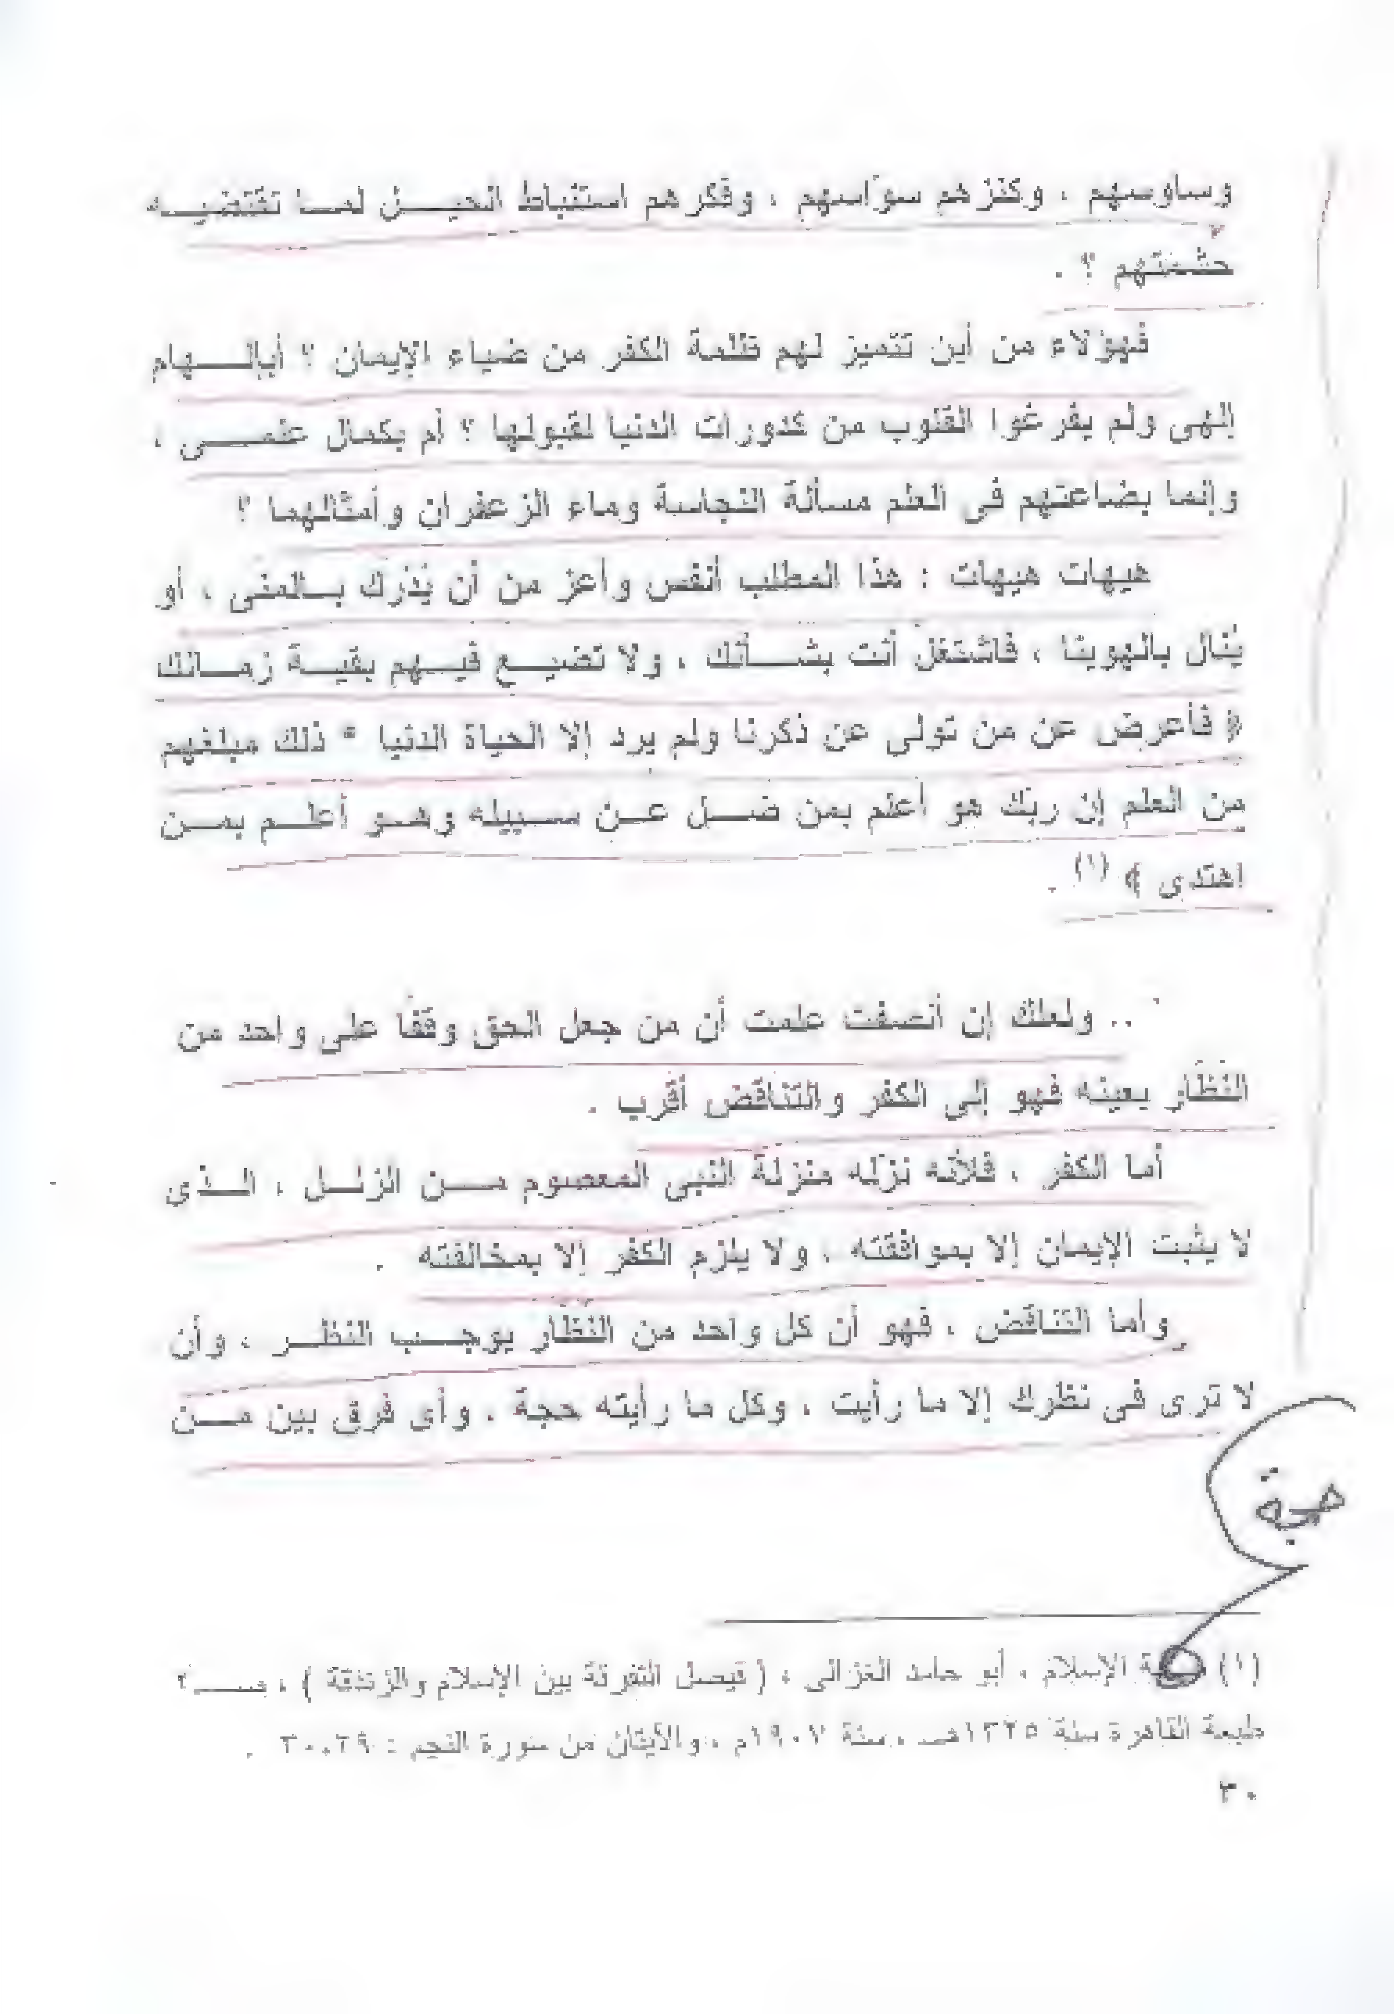 وساوسهم ، وكنزهم سوّاسهم ، وفكرهم استنباط الحيـــل لمـــا تقتضيـــه
حشمتهم ؟ .
فهؤلاء من أين تتميز لهم ظلمة الكفر من ضياء الإيمان ؟ أبإلـــهام
إلهى ولم يفرغوا القلوب من كدورات الدنيا لقبولها ؟ أم بكمال علمـــى ،
وإنما بضاعتهم فى العلم مسألة النجاسة وماء الزعفران وأمثالهما ؟
هيهات هيهات : هذا المطلب أنفس وأعز من أن يُدرك بـــالمنى ، أو
يُنال بالهوينا ، فاشتغل أنت بشـــأنك ، ولا تضيـــع فيـــهم بقيـــة زمـــانك
﴿ فأعرض عن من تولى عن ذكرنا ولم يرد إلا الحياة الدنيا * ذلك مبلغهم
من العلم إن ربك هو أعلم بمن ضـــل عـــن ســـبيله وهـــو أعلـــم بمـــن
اهتدى ﴾ (١) .
.. ولعلك إن أنصفت علمت أن من جعل الحق وقفًا على واحد من
النُظَّار بعينه فهو إلى الكفر والتناقض أقرب .
أما الكفر ، فلأنه نزّله منزلة النبى المعصوم مـــن الزلـــل ، الـــذى
لا يثبت الإيمان إلا بموافقته ، ولا يلزم الكفر إلا بمخالفته .
وأما التناقض ، فهو أن كل واحد من النُظَّار يوجـــب النظـــر ، وأن
لا ترى فى نظرك إلا ما رأيت ، وكل ما رأيته حجة ، وأى فرق بين مـــن
(١) الإسلام ، أبو حامد الغزالى ، ( فيصل التفرقة بين الإسلام والزندقة ) ،
طبعة القاهرة سنة ١٣٢٥هـــ ، سنة ١٩٠٧م ، والآيتان من سورة النجم : ٢٩،٣٠ .
٣٠